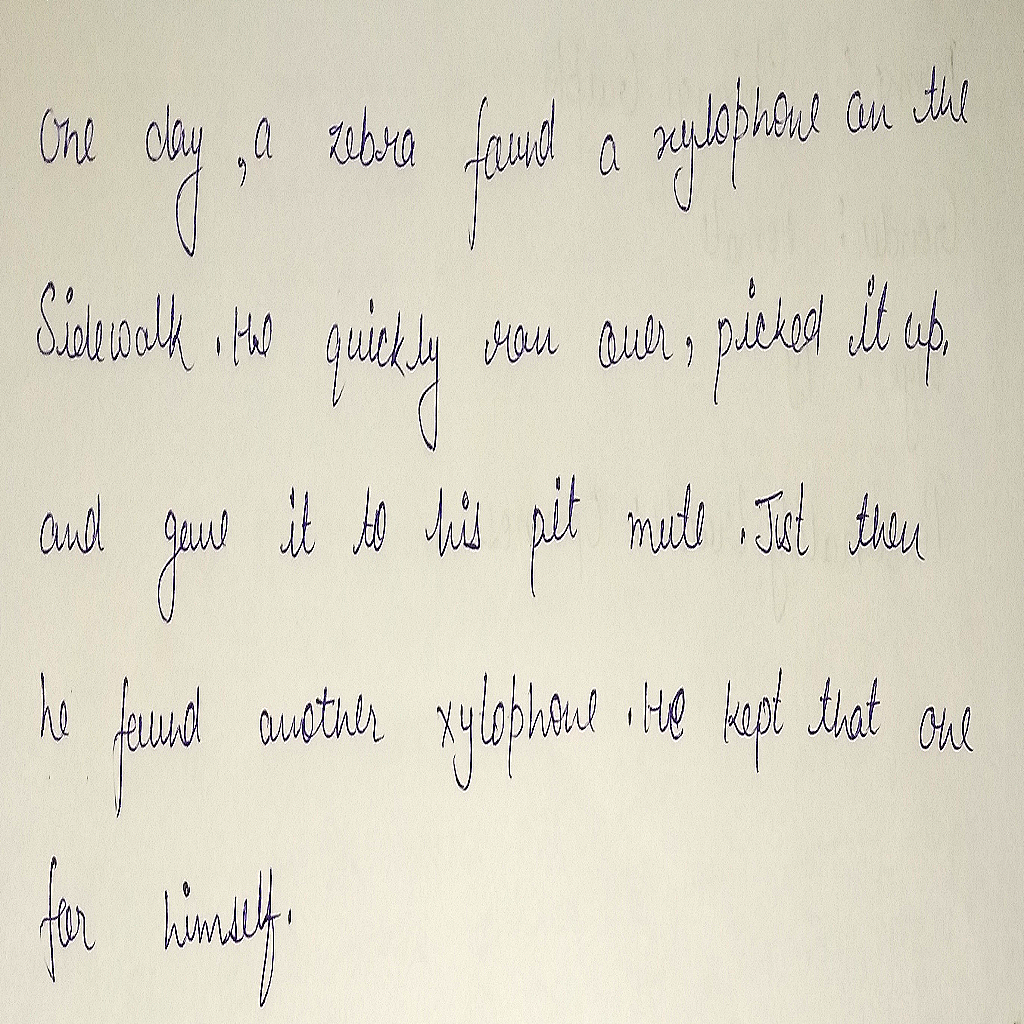 One day, a zebra found a xylophone on the
Sidewalk. He quickly ran over, picked it up.
and gave it to his pit mule. Jist then
he found another xylophone. He kept that one
for himself.